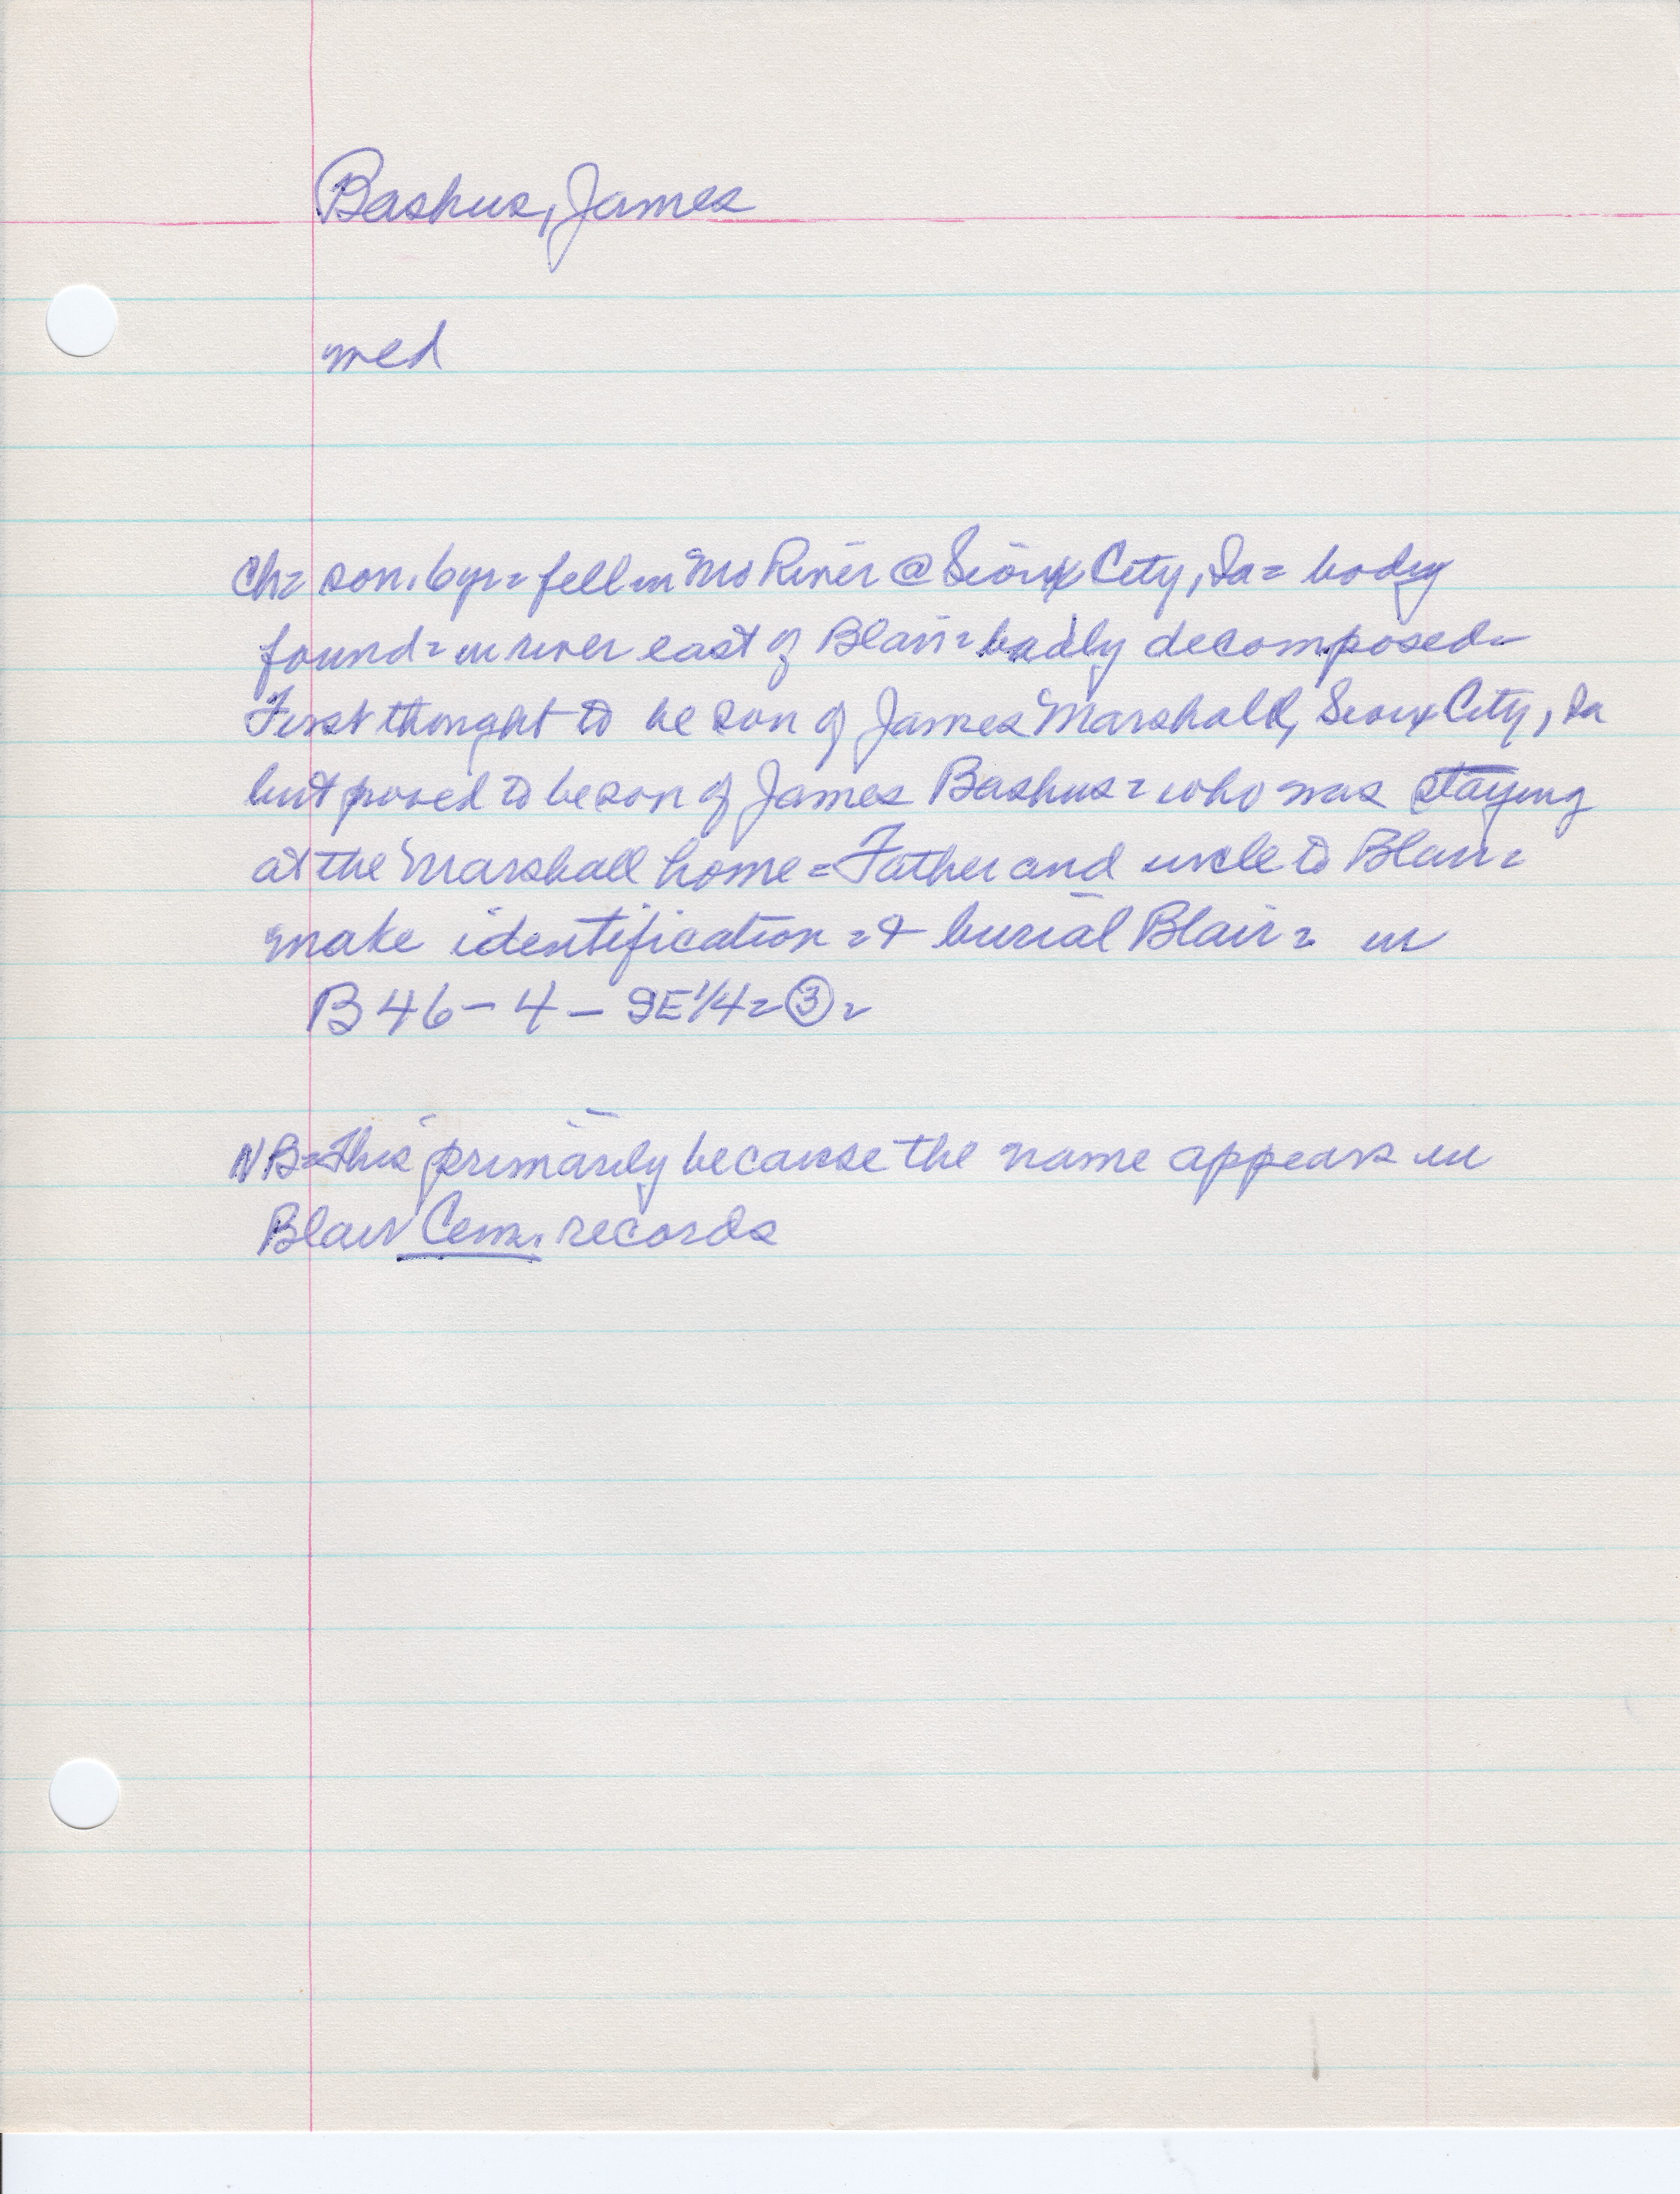 Bashus, James
med
Ch= son. 6yr= fell in Mo River @ Sioux City, Ia= body
found= in river east of Blair= badly decomposed=
First thought to be son of James Marshall, Sioux City, Ia
but proved to be son of James Bashus= who was staying
at the Marshall home= Father and uncle to Blair=
make identification= & burial Blair= in
B 46-4- SE 1/4= ③=
NB= This primarily because the name appears in
Blair Cem. records